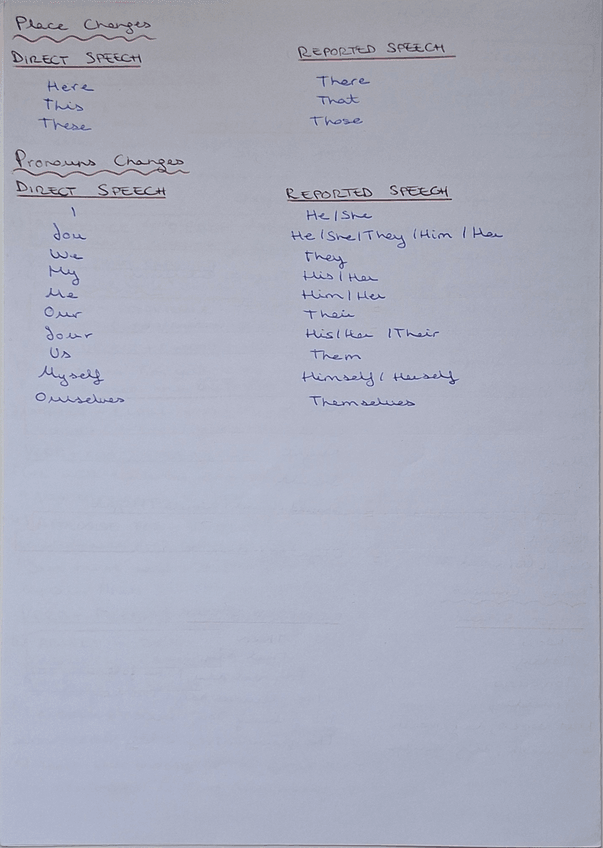 Place Changes
DIRECT SPEECH REPORTED SPEECH
Here There
This That
These Those
Pronouns Changes
DIRECT SPEECH REPORTED SPEECH
I He/She
You He/She/They/Him/Her
We They
My His/Her
Me Him/Her
Our Their
Your His/Her/Their
Us Them
Myself Himself/Herself
Ourselves Themselves